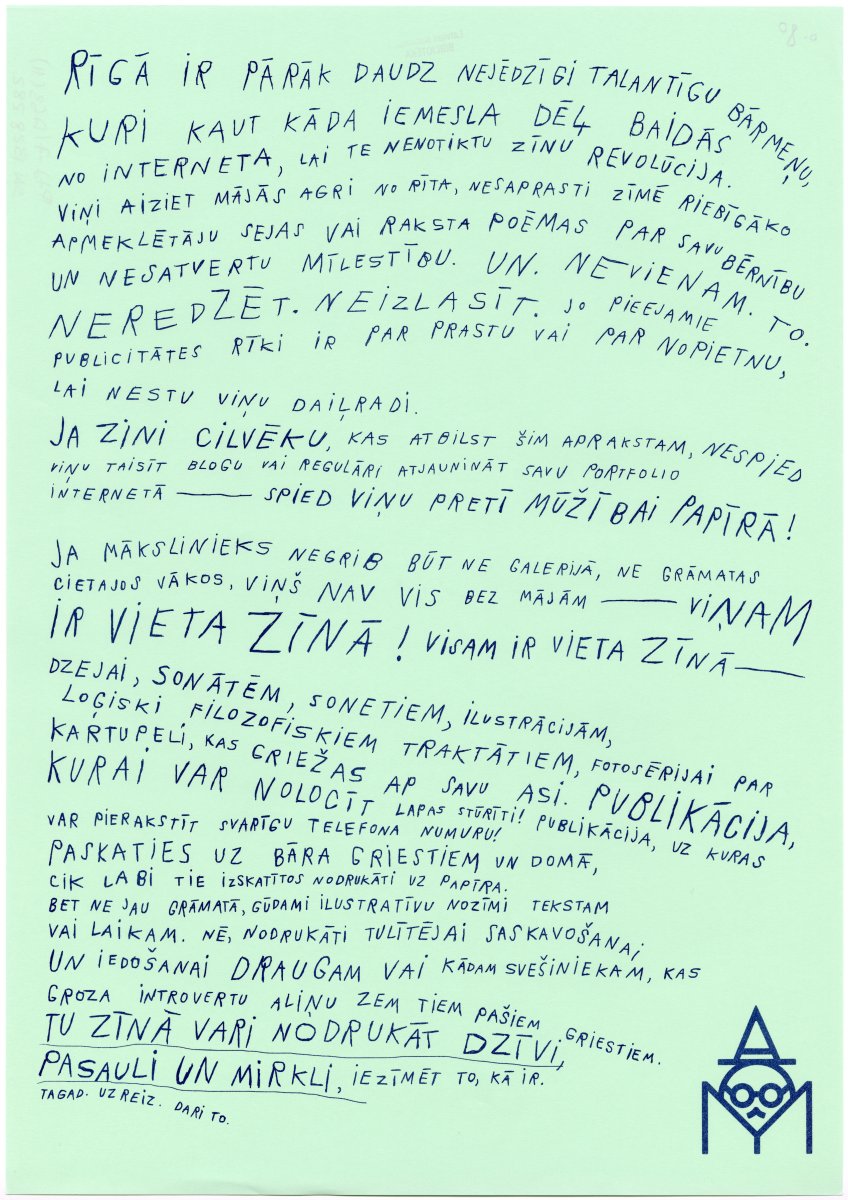 RĪGĀ IR PĀRĀK DAUDZ NEJĒDZĪGI TALANTĪGU BĀRMEŅU,
KURI KAUT KĀDA IEMESLA DĒĻ BAIDĀS
NO INTERNETA, LAI TE NENOTIKTU ZĪNU REVOLŪCIJA.
VIŅI AIZIET MĀJĀS AGRI NO RĪTA, NESAPRASTI ZĪMĒ RIEBĪGĀKO
APMEKLĒTĀJU SEJAS VAI RAKSTA POĒMAS PAR SAVU BĒRNĪBU
UN NESATVERTU MĪLESTĪBU. UN. NEVIENAM. TO.
NEREDZĒT. NEIZLASĪT. JO PIEEJAMIE
PUBLICITĀTES RĪKI IR PAR PRASTU VAI PAR NOPIETNU,
LAI NESTU VIŅU DAIĻRADI.
JA ZINI CILVĒKU, KAS ATBILST ŠIM APRAKSTAM, NESPIED
VIŅU TAISĪT BLOGU VAI REGULĀRI ATJAUNINĀT SAVU PORTFOLIO
INTERNETĀ — SPIED VIŅU PRETĪ MŪŽĪBAI PAPĪRĀ!
JA MĀKSLINIEKS NEGRIB BŪT NE GALERIJĀ, NE GRĀMATAS
CIETAJOS VĀKOS, VIŅŠ NAV VIS BEZ MĀJĀM — VIŅAM
IR VIETA ZĪNĀ! VISAM IR VIETA ZĪNĀ —
DZEJAI, SONĀTĒM, SONETIEM, ILUSTRĀCIJĀM,
LOĢISKI FILOZOFISKIEM TRAKTĀTIEM, FOTOSĒRIJAI PAR
KARTUPELI, KAS GRIEŽAS AP SAVU ASI. PUBLIKĀCIJA,
KURAI VAR NOLOCĪT LAPAS STŪRĪTI! PUBLIKĀCIJA, UZ KURAS
VAR PIERAKSTĪT SVARĪGU TELEFONA NUMURU!
PASKATIES UZ BĀRA GRIESTIEM UN DOMĀ,
CIK LABI TIE IZSKATĪTOS NODRUKĀTI UZ PAPĪRA.
BET NE JAU GRĀMATĀ, GŪDAMI ILUSTRATĪVU NOZĪMI TEKSTAM
VAI LAIKAM. NĒ, NODRUKĀTI TULĪTĒJAI SASKAVOŠANAI
UN IEDOŠANAI DRAUGAM VAI KĀDAM SVEŠINIEKAM, KAS
GROZA INTROVERTU ALIŅU ZEM TIEM PAŠIEM GRIESTIEM.
TU ZĪNĀ VARI NODRUKĀT DZĪVI,
PASAULI UN MIRKLI, IEZĪMĒT TO, KĀ IR.
TAGAD. UZREIZ. DARI TO.